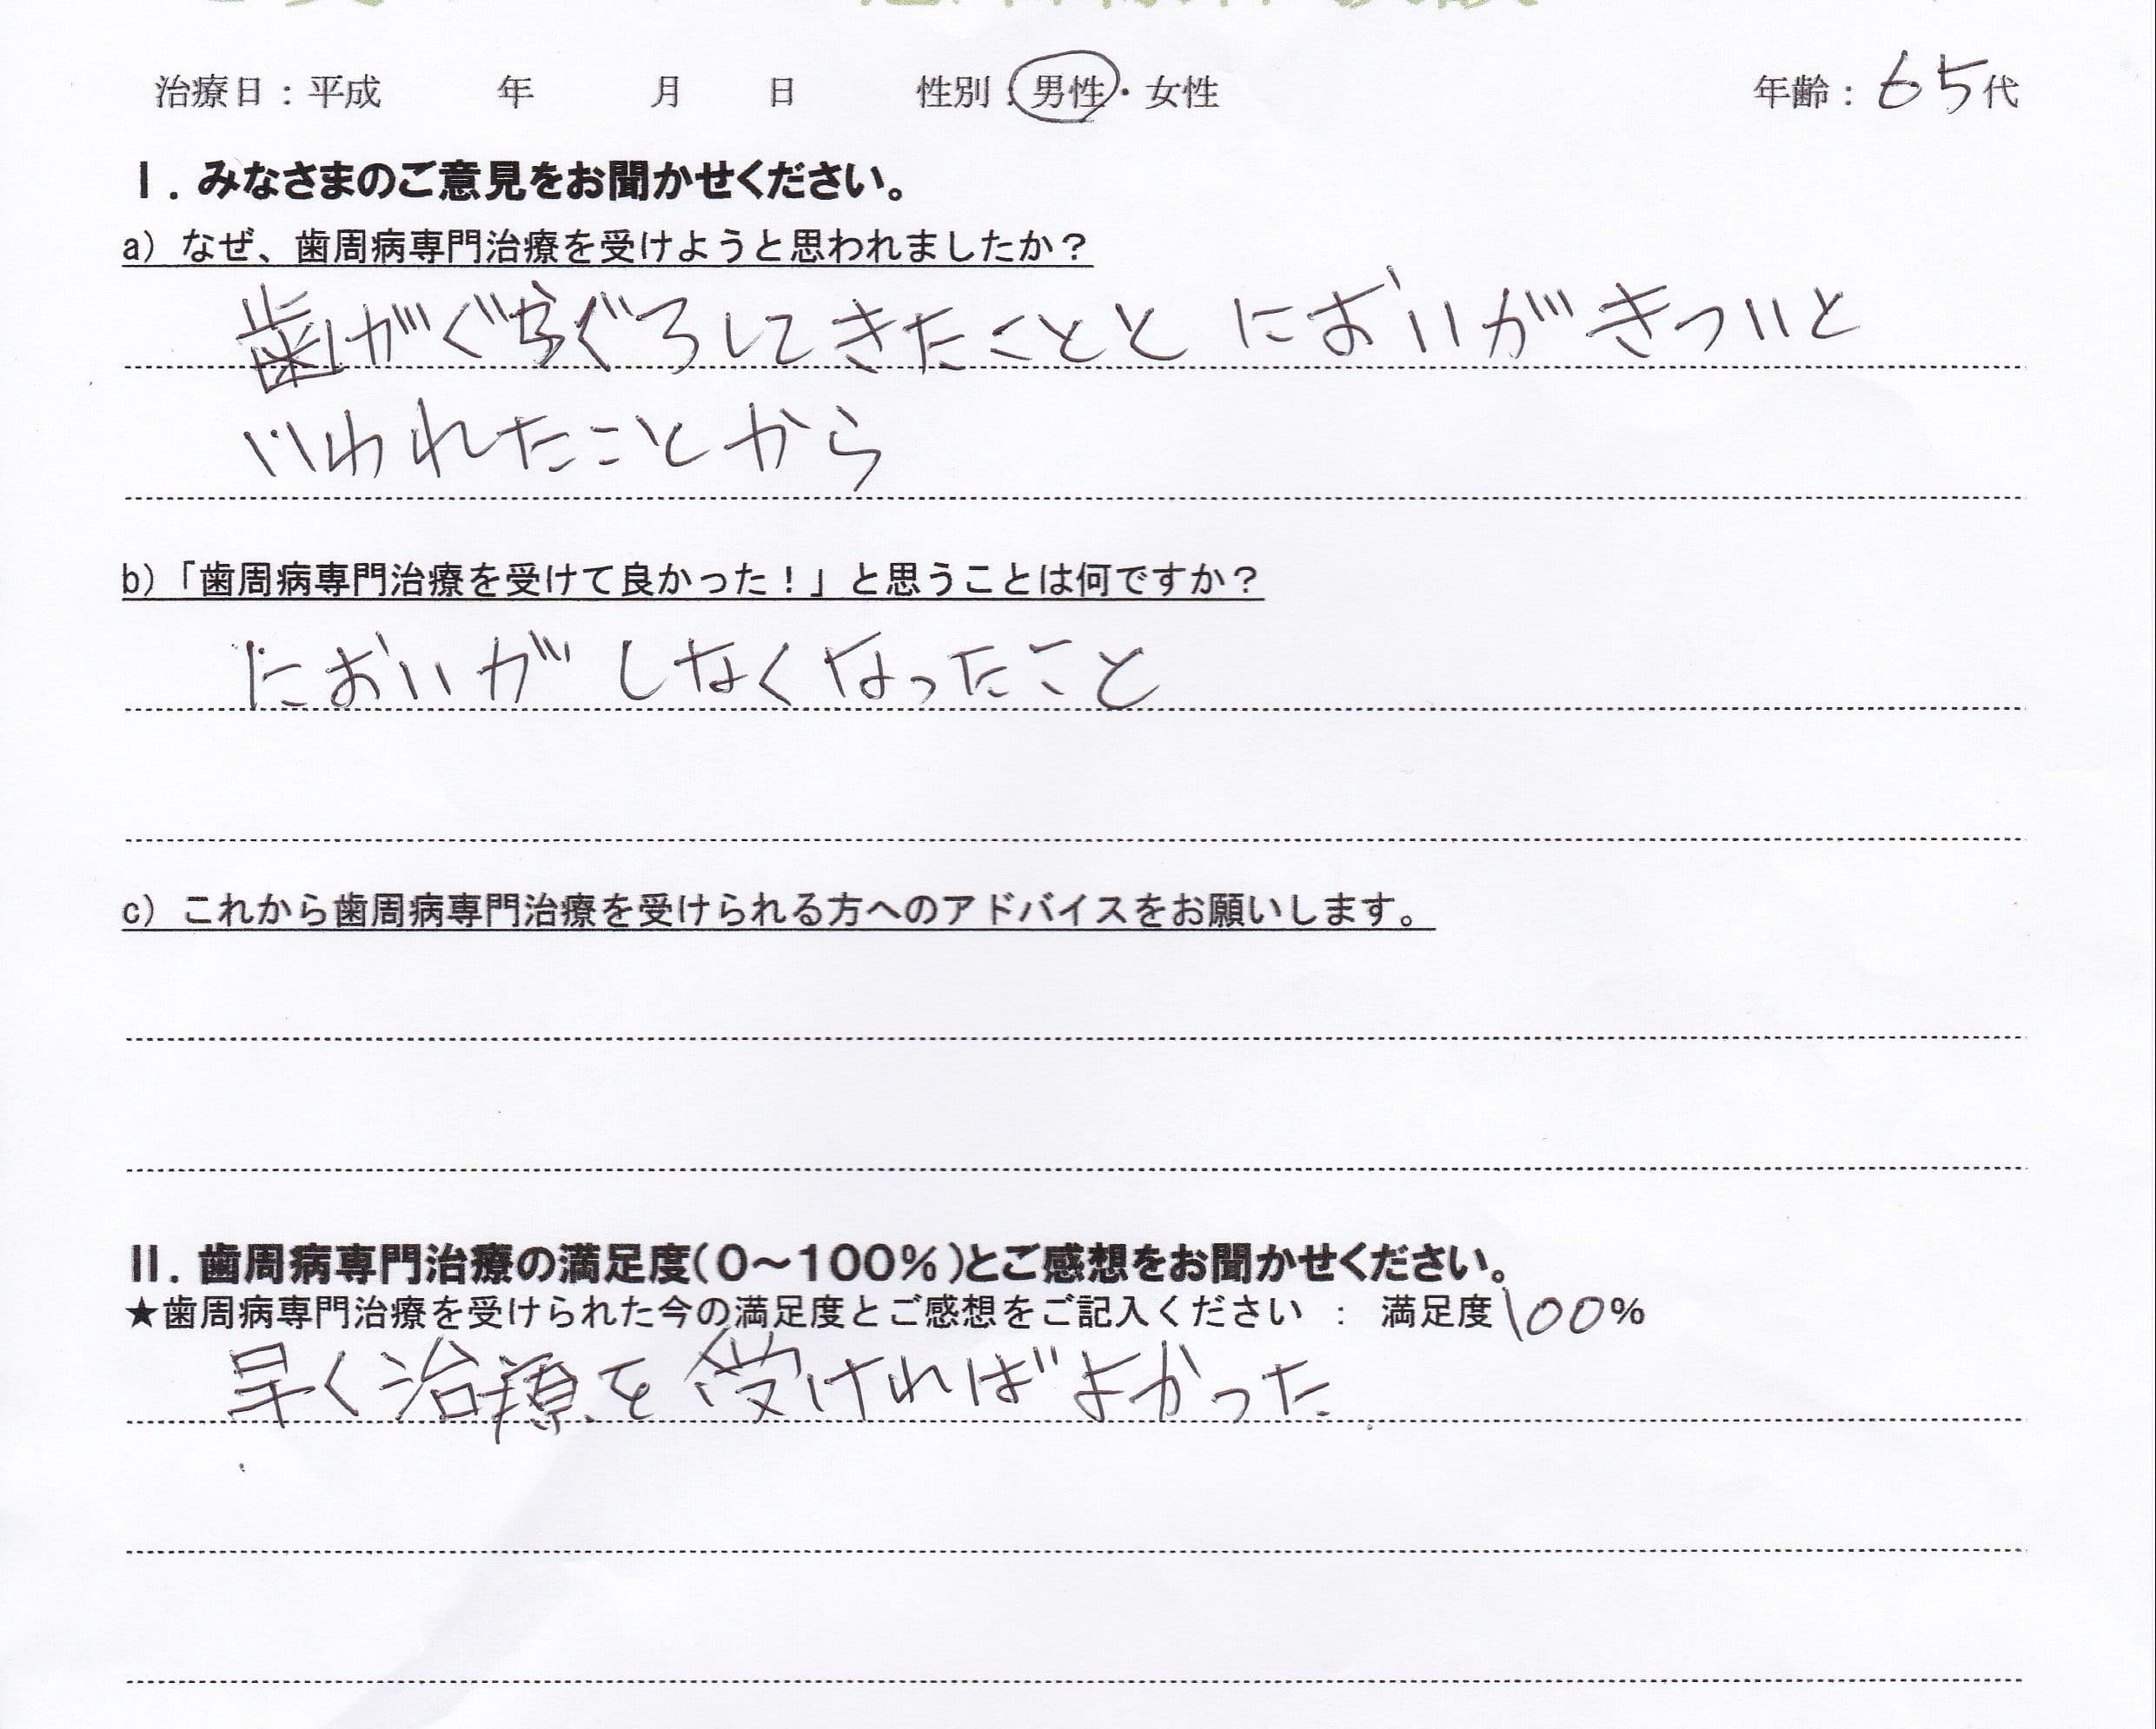 治療日：平成　　年　　月　　日　　性別：男性・女性　　年齢：65代
Ⅰ．みなさまのご意見をお聞かせください。
a）なぜ、歯周病専門治療を受けようと思われましたか？
歯がぐらぐろしてきたことと においがきついと
いわれたことから
b）「歯周病専門治療を受けて良かった！」と思うことは何ですか？
においが しなくなったこと
c）これから歯周病専門治療を受けられる方へのアドバイスをお願いします。
Ⅱ．歯周病専門治療の満足度（0～100％）とご感想をお聞かせください。
★歯周病専門治療を受けられた今の満足度とご感想をご記入ください ： 満足度100％
早く治療を受ければよかった